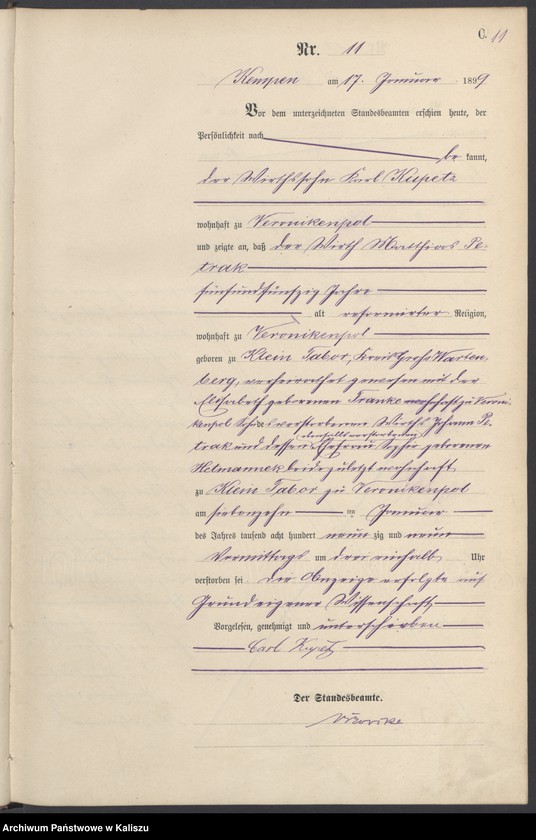 C. 11
Nr. 11
Kempen am 17. Januar 1899
Vor dem unterzeichneten Standesbeamten erschien heute, der
Persönlichkeit nach
be kannt,
der Wirthssohn Karl Kupetz
wohnhaft zu Veronikenpol
und zeigte an, daß der Wirth Matthias Pe-
trak
fünfundfünfzig Jahre
alt reformirter Religion,
wohnhaft zu Veronikenpol
geboren zu Klein Tabor, Kreis Groß Warten-
berg, verheirathet gewesen mit der
Elisabeth geborenen Franke wohnhaft zu Veroni-
kenpol Sohn des verstorbenen Wirths Johann Pe-
ebenfalls verstorbenen
trak und dessen Ehefrau geborenen
Helmannek beide zuletzt wohnhaft
zu Klein Tabor zu Veronikenpol
am siebenzehn ten Januar
des Jahres tausend acht hundert neun zig und neun
Vormittags um drei einhalb Uhr
verstorben sei. Die Anzeige erfolgte auf
Grund eigener Wissenschaft
Vorgelesen, genehmigt und unterschrieben
Carl Kupetz
Der Standesbeamte.
Archiwum Państwowe w Kaliszu